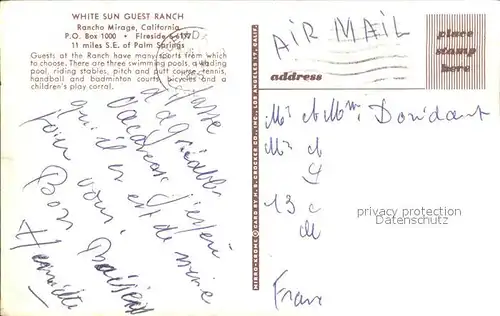 WHITE SUN GUEST RANCH
Rancho Mirage, California
P.O. Box 1000 • Fireside
11 miles S.E. of Palm Springs
Guests at the Ranch have many sports from which
to choose. There are three swimming pools, a wading
pool, riding stables, pitch and putt course, tennis,
handball and badminton courts, bicycles and a
children's play corral.
passe
d'agréables
vacances j'espère
qu'il en est de même
pour vous.
Bons Baisers
Henriette
MIRRO-KROME ® CARD BY H. S. CROCKER CO., INC., LOS ANGELES, CALIF.
AIR MAIL
address
place
stamp
here
Mr et Mme
13
privacy protection
Datenschutz